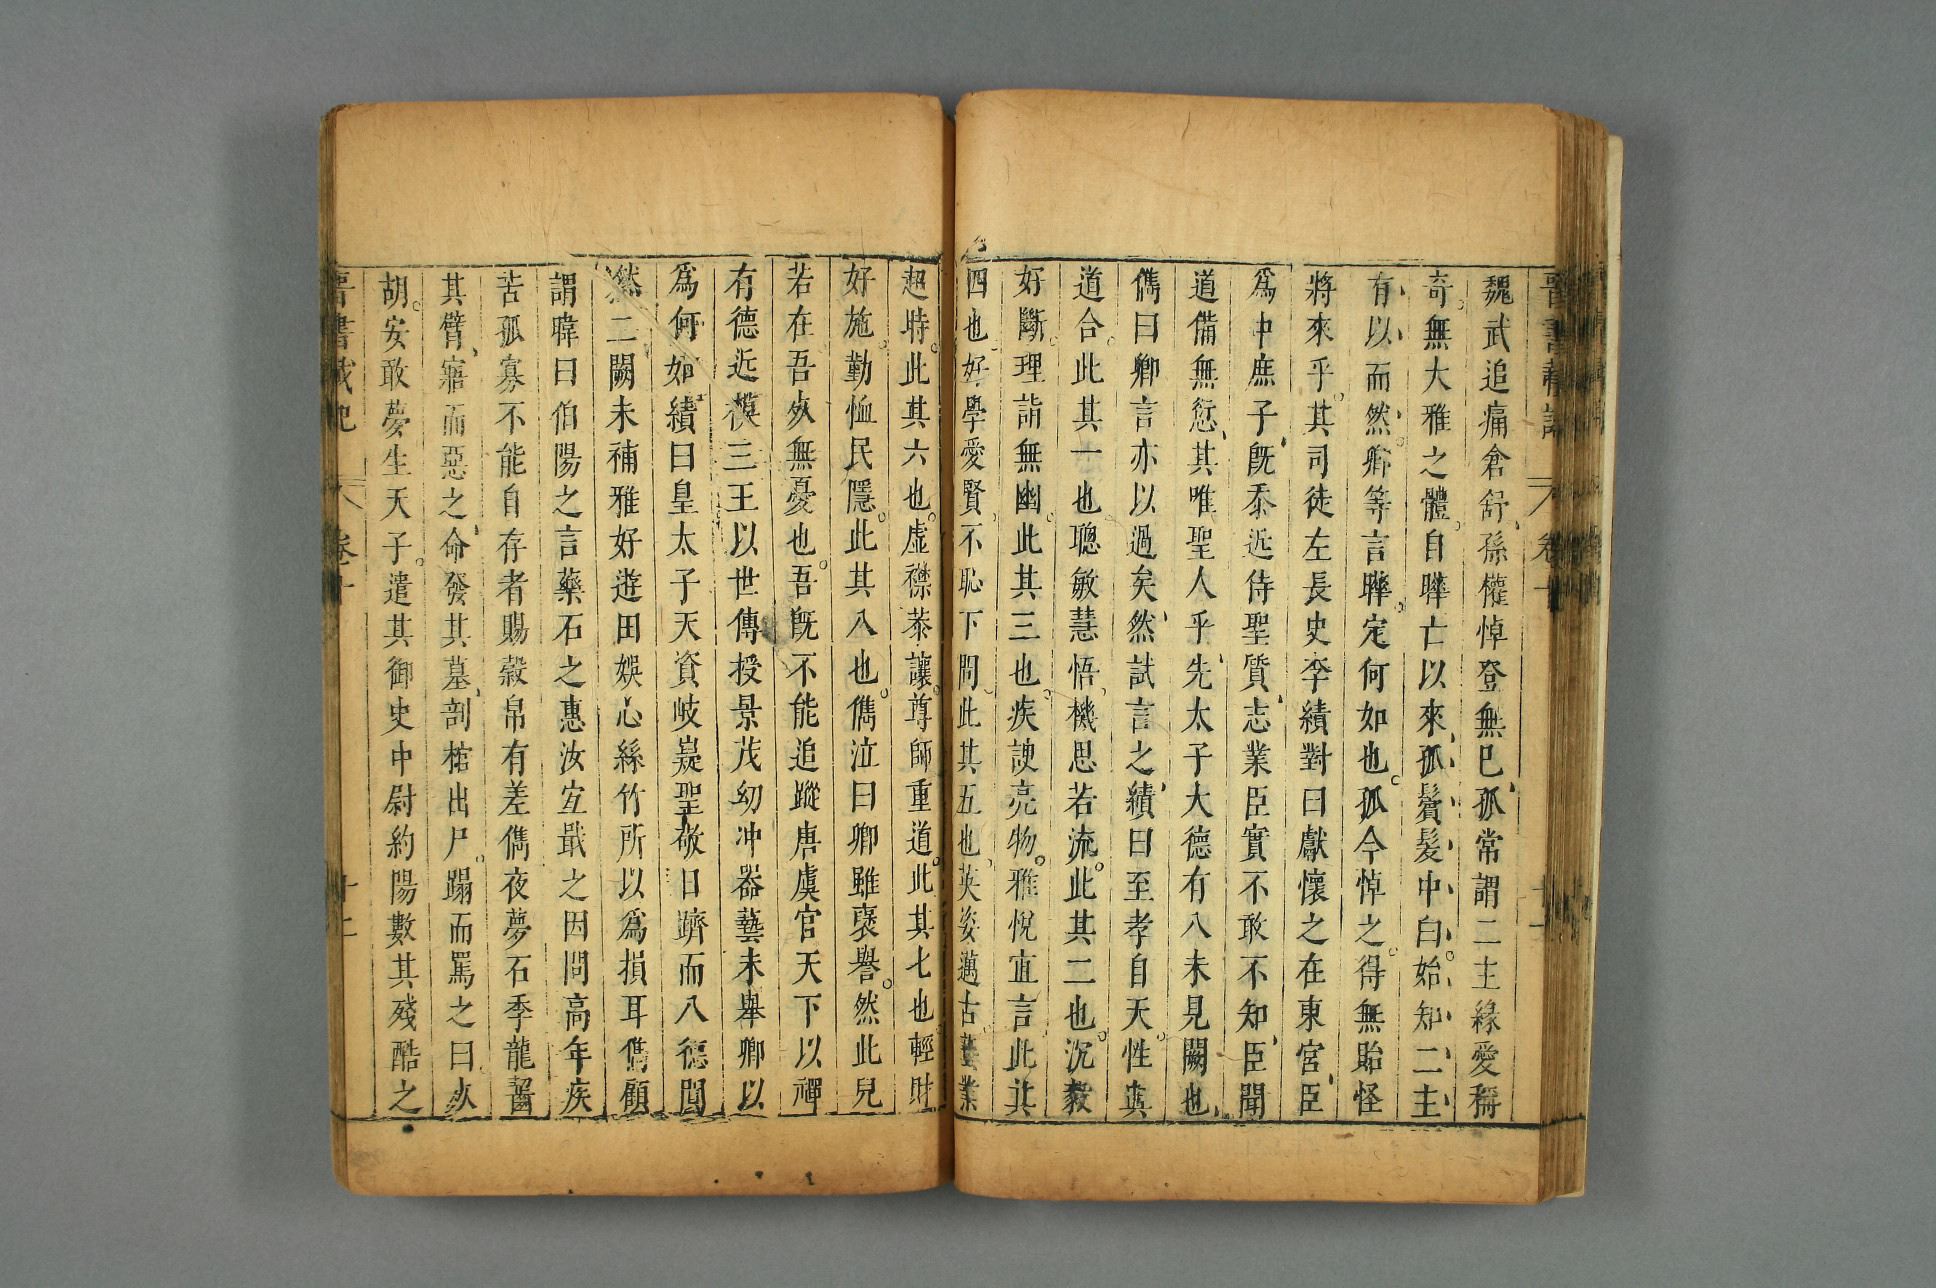 晉書載記 卷十 十一
魏武追痛倉舒孫權悼登無已孤常謂二主緣愛稱
奇無大雅之體自曄亡以來孤鬢髮中白始知二主
有以而然卿等言曄定何如也孤今悼之得無貽怪
將來乎其司徒左長史李績對曰獻懷之在東宮臣
爲中庶子旣忝近侍聖質志業臣實不敢不知臣聞
道備無愆其唯聖人乎先太子大德有八未見闕也
儁曰卿言亦以過矣然試言之績曰至孝自天性與
道合此其一也聰敏慧悟機思若流此其二也沉毅
好斷理詣無幽此其三也疾諛亮物雅悅直言此其
四也好學愛賢不恥下問此其五也英姿邁古藝業
超時此其六也虛襟恭讓尊師重道此其七也輕財
好施勤恤民隱此其八也儁泣曰卿雖襃譽然此兒
若在吾死無憂也吾旣不能追蹤唐虞官天下以禪
有德近模三王以世傳授景茂幼沖器藝未舉卿以
爲何如績曰皇太子天資岐嶷聖敬日躋而八德闻
然二闕未補雅好遊田娛心絲竹所以爲損耳儁顧
謂暐曰伯陽之言藥石之惠汝宜戢之因問高年疾
苦孤寡不能自存者賜穀帛有差儁夜夢石季龍齧
其臂寤而惡之命發其墓剖棺出尸蹋而罵之曰死
胡安敢夢生天子遣其御史中尉約陽數其殘酷之
晉書載記 卷十 十二